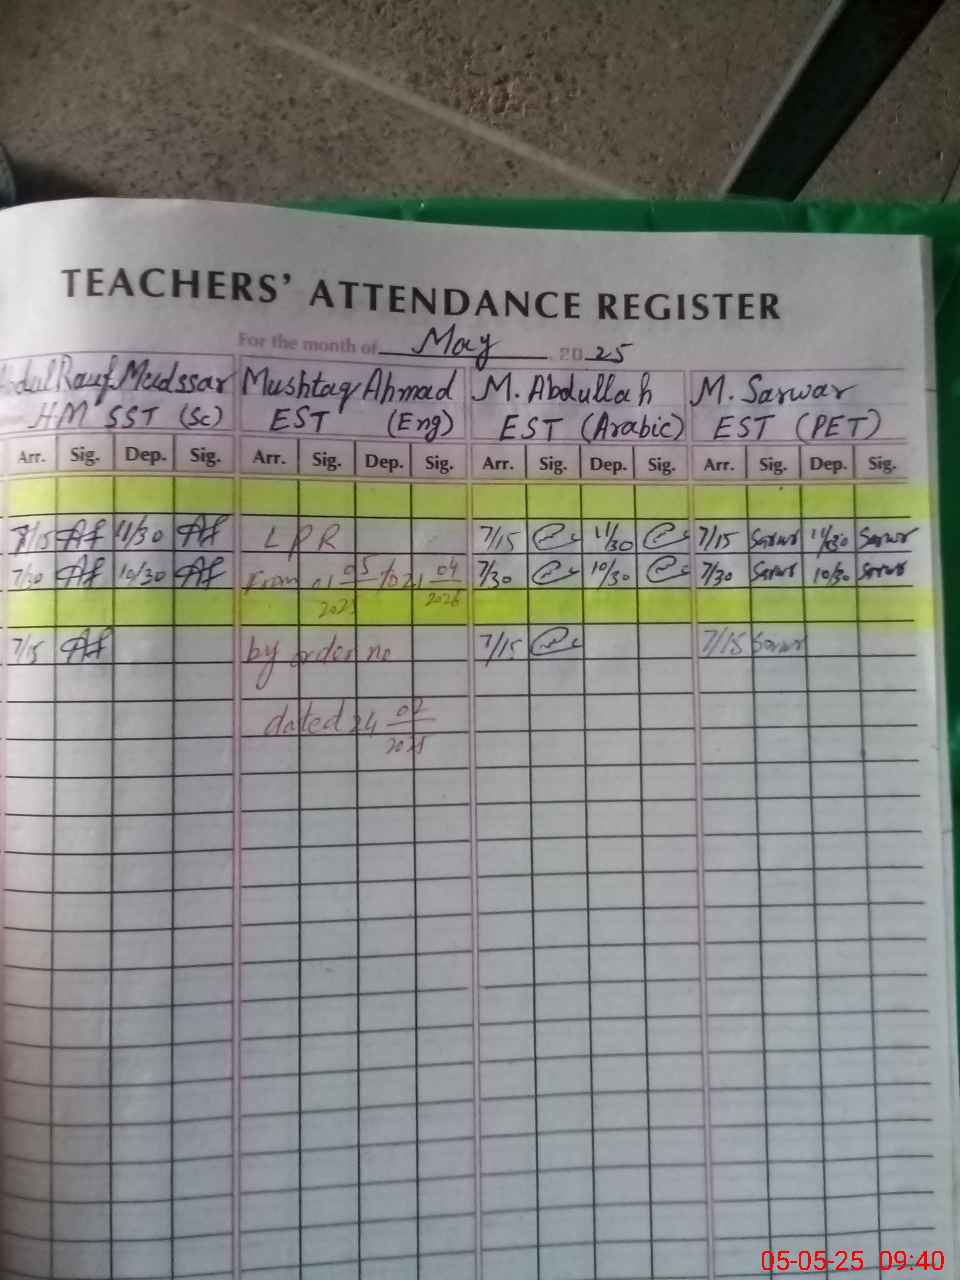 TEACHERS' ATTENDANCE REGISTER
For the month of May 2025
Abdul Rauf Mudssar Mushtaq Ahmad M. Abdullah M. Sarwar
HM SST (Sc) EST (Eng) EST (Arabic) EST (PET)
Arr. Sig. Dep. Sig. Arr. Sig. Dep. Sig. Arr. Sig. Dep. Sig. Arr. Sig. Dep. Sig.
7/15 11/30 L P R 7/15 11/30 7/15 Sarwr 11/30 Sarwr
7/30 10/30 From 01 05/2025 to 04/2026 7/30 10/30 7/30 Sarwr 10/30 Sarwr
7/15 by order no 7/15 7/15 Sarwr
dated 24 02/2025
05-05-25 09:40